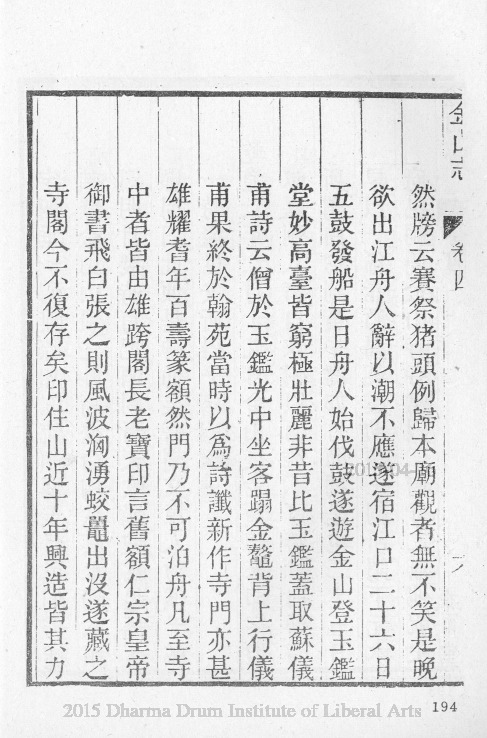 金山志 卷四
然牓云賽祭猪頭例歸本廟觀者無不笑是晚
欲出江舟人辭以潮不應遂宿江口二十六日
五鼓發船是日舟人始伐鼓遂遊金山登玉鑑
堂妙高臺皆窮極壯麗非昔比玉鑑蓋取蘇儀
甫詩云僧於玉鑑光中坐客蹋金鼇背上行儀
甫果終於翰苑當時以爲詩讖新作寺門亦甚
雄耀耆年百壽篆額然門乃不可泊舟凡至寺
中者皆由雄跨閣長老寶印言舊額仁宗皇帝
御書飛白張之則風波洶湧蛟鼉出沒遂藏之
寺閣今不復存矣印住山近十年興造皆其力
194
2015 Dharma Drum Institute of Liberal Arts